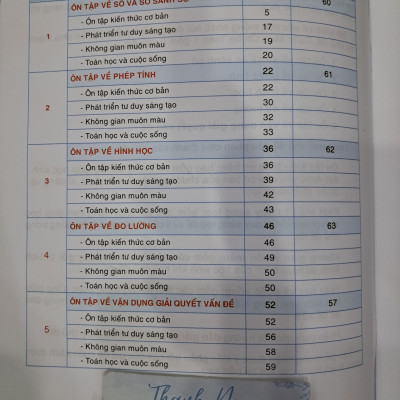 ÔN TẬP VỀ SỐ VÀ SO SÁNH SỐ 60
1
- Ôn tập kiến thức cơ bản 5
- Phát triển tư duy sáng tạo 17
- Không gian muôn màu 19
- Toán học và cuộc sống 20
ÔN TẬP VỀ PHÉP TÍNH 22 61
2
- Ôn tập kiến thức cơ bản 22
- Phát triển tư duy sáng tạo 30
- Không gian muôn màu 32
- Toán học và cuộc sống 33
ÔN TẬP VỀ HÌNH HỌC 36 62
3
- Ôn tập kiến thức cơ bản 36
- Phát triển tư duy sáng tạo 39
- Không gian muôn màu 42
- Toán học và cuộc sống 43
ÔN TẬP VỀ ĐO LƯỜNG 46 63
4
- Ôn tập kiến thức cơ bản 46
- Phát triển tư duy sáng tạo 49
- Không gian muôn màu 50
- Toán học và cuộc sống 50
ÔN TẬP VỀ VẬN DỤNG GIẢI QUYẾT VẤN ĐỀ 52 57
5
- Ôn tập kiến thức cơ bản 52
- Phát triển tư duy sáng tạo 56
- Không gian muôn màu 58
- Toán học và cuộc sống 59
Thanh